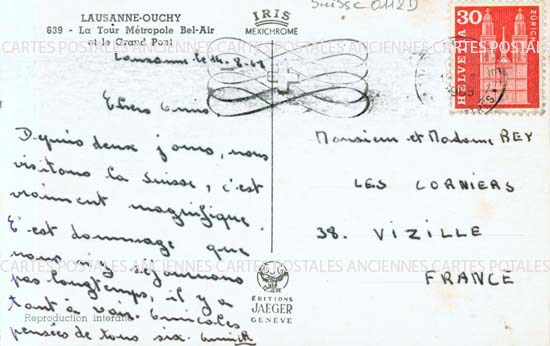 Suisse 0112D
LAUSANNE-OUCHY
639 - La Tour Métropole Bel-Air
et le Grand Pont
IRIS
MEXICHROME
30
HELVETIA
ZÜRICH
CARTES POSTALES ANCIENNES CARTES POSTALES ANCIENNES CARTES POSTALES
Lausanne le 14-8-68
Chers Amis
Depuis deux jours, nous
visitons la Suisse, c'est
vraiment magnifique.
C'est dommage que
nous n'y séjournons
pas longtemps, il y a
tant à voir. Amicales
pensées de tous six.
Monsieur et Madame REY
LES CORNIERS
38. VIZILLE
FRANCE
CARTES POSTALES ANCIENNES CARTES POSTALES ANCIENNES CARTES POSTALES
ÉDITIONS
JAEGER
GENÈVE
Reproduction interdite